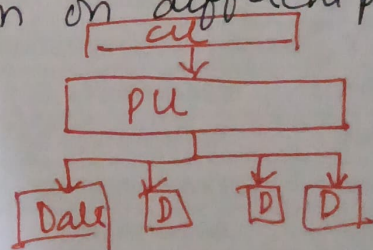 n on different p
CU
PU
Data D D D